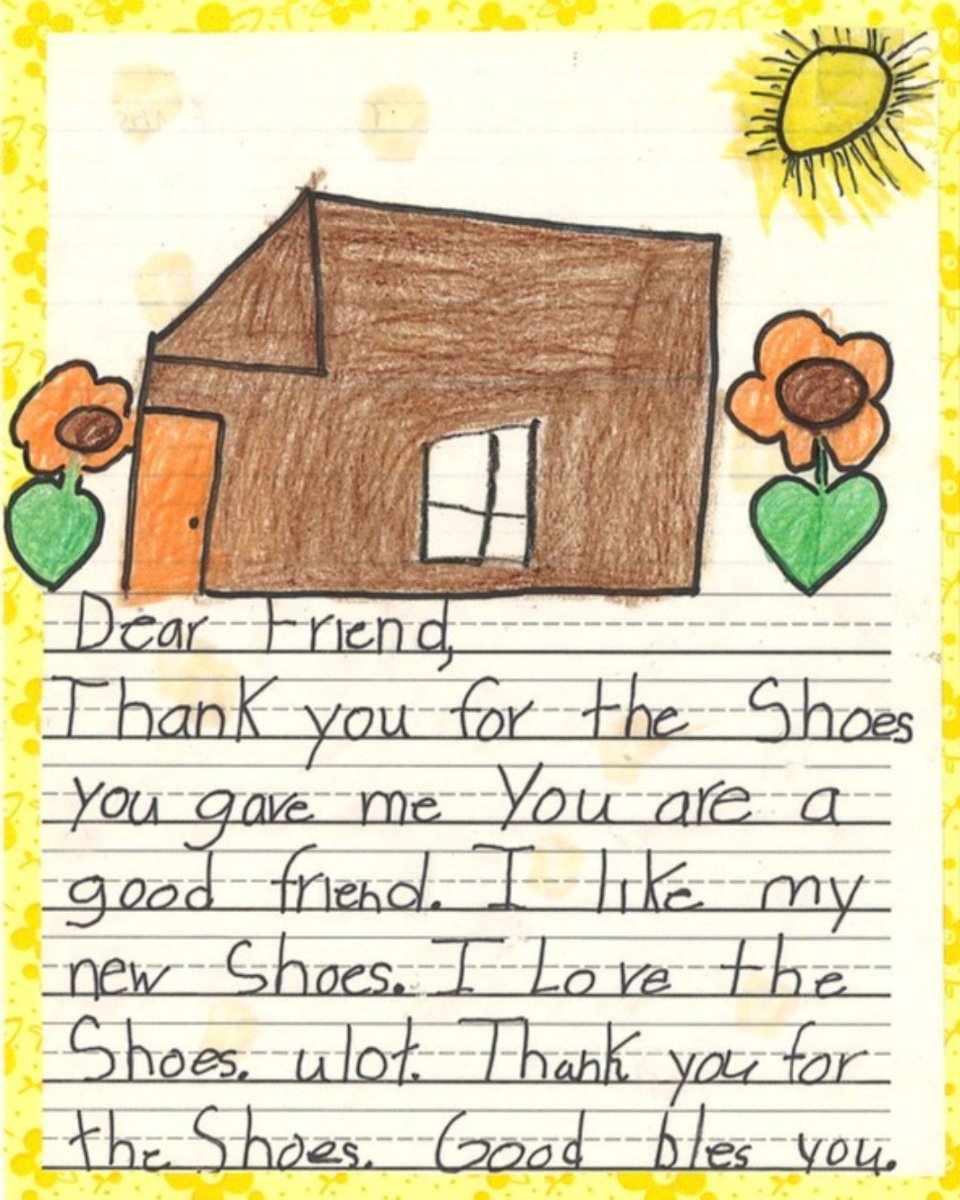 Dear Friend,
Thank you for the Shoes
you gave me You are a
good friend. I like my
new Shoes. I Love the
Shoes. ulot. Thank you for
the Shoes. Good bles you.